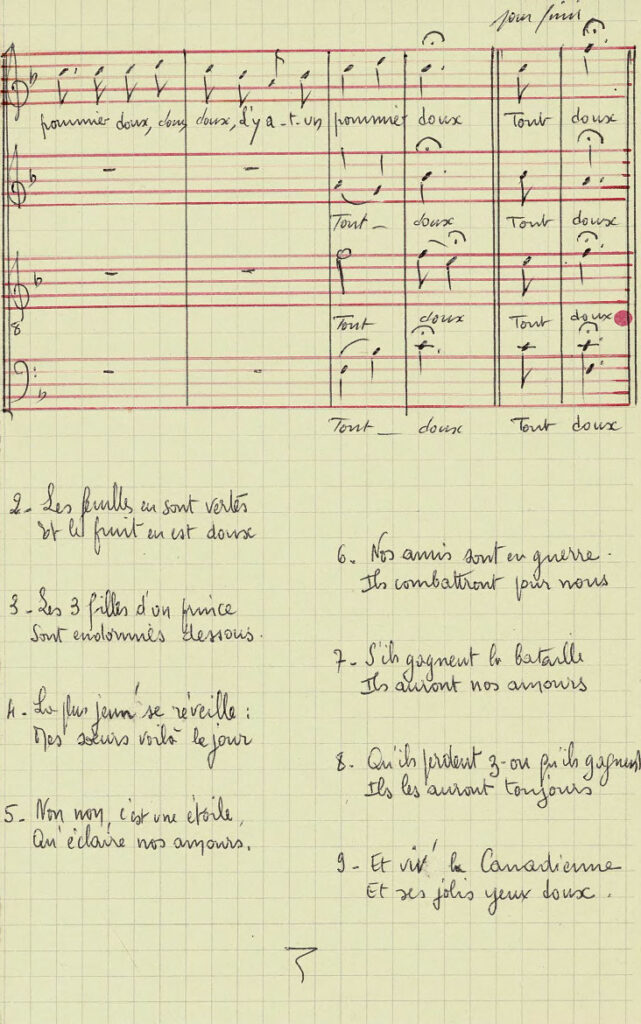 pour finir
pommier doux, doux, doux, d'y a-t-un pommier doux Tout doux
Tout_ doux Tout doux
Tout doux Tout doux
8
Tout_ doux Tout doux
2- Les feuilles en sont vertes
Et le fruit en est doux
3- Les 3 filles d'un prince
Sont endormies dessous.
4- La plus jeun' se réveille :
Mes sœurs voilà le jour
5- Non non, c'est une étoile,
Qu'éclaire nos amours.
6- Nos amis sont en guerre.
Ils combattront pour nous
7- S'ils gagnent la bataille
Ils auront nos amours
8. Qu'ils perdent z-ou qu'ils gagnent
Ils les auront toujours
9- Et viv' la Canadienne
Et ses jolis yeux doux.